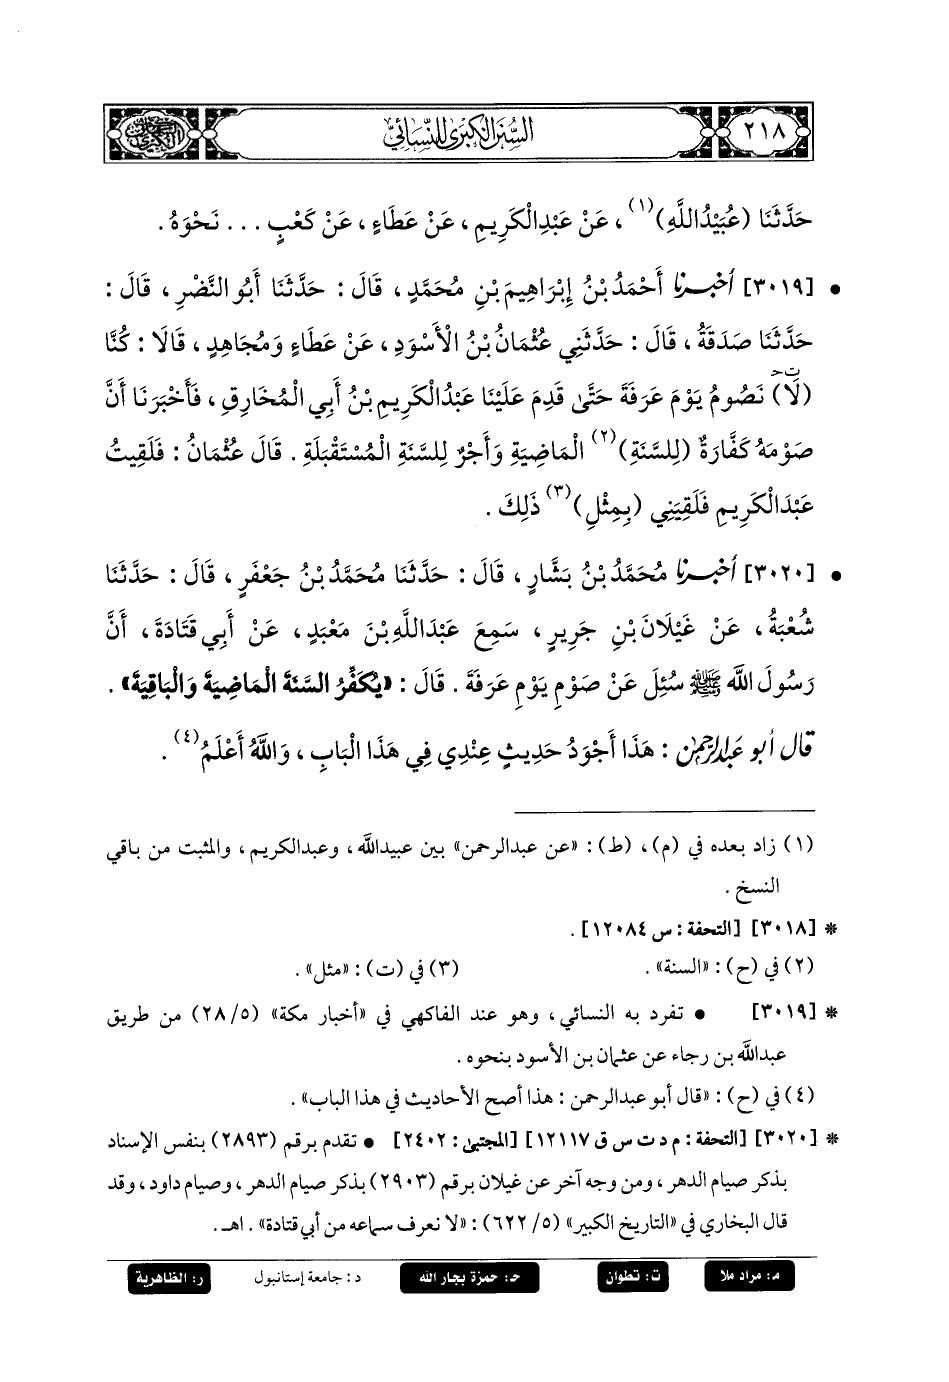 ٢١٨
السنن الكبرى للنسائي
حَدَّثَنَا (عُبَيْدُاللَّهِ)(١)، عَنْ عَبْدِالْكَرِيمِ، عَنْ عَطَاءٍ، عَنْ كَعْبٍ ... نَحْوَهُ.
• [٣٠١٩] أخبرنا أَحْمَدُ بْنُ إِبْرَاهِيمَ بْنِ مُحَمَّدٍ، قَالَ: حَدَّثَنَا أَبُو النَّضْرِ، قَالَ:
حَدَّثَنَا صَدَقَةُ، قَالَ: حَدَّثَنِي عُثْمَانُ بْنُ الْأَسْوَدِ، عَنْ عَطَاءٍ وَمُجَاهِدٍ، قَالَا: كُنَّا
(لَا) نَصُومُ يَوْمَ عَرَفَةَ حَتَّى قَدِمَ عَلَيْنَا عَبْدُالْكَرِيمِ بْنُ أَبِي الْمُخَارِقِ، فَأَخْبَرَنَا أَنَّ
صَوْمَهُ كَفَّارَةٌ (لِلسَّنَةِ)(٢) الْمَاضِيَةِ وَأَجْرٌ لِلسَّنَةِ الْمُسْتَقْبَلَةِ. قَالَ عُثْمَانُ: فَلَقِيتُ
عَبْدَالْكَرِيمِ فَلَقِيَنِي (بِمِثْلِ)(٣) ذَلِكَ.
• [٣٠٢٠] أخبرنا مُحَمَّدُ بْنُ بَشَّارٍ، قَالَ: حَدَّثَنَا مُحَمَّدُ بْنُ جَعْفَرٍ، قَالَ: حَدَّثَنَا
شُعْبَةُ، عَنْ غَيْلَانَ بْنِ جَرِيرٍ، سَمِعَ عَبْدَاللَّهِ بْنَ مَعْبَدٍ، عَنْ أَبِي قَتَادَةَ، أَنَّ
رَسُولَ اللَّهِ ﷺ سُئِلَ عَنْ صَوْمِ يَوْمِ عَرَفَةَ. قَالَ: «يُكَفِّرُ السَّنَةَ الْمَاضِيَةَ وَالْبَاقِيَةَ».
قال أبو عبدالرحمن: هَذَا أَجْوَدُ حَدِيثٍ عِنْدِي فِي هَذَا الْبَابِ، وَاللَّهُ أَعْلَمُ(٤).
(١) زاد بعده في (م)، (ط): «عن عبدالرحمن» بين عبيدالله، وعبدالكريم، والمثبت من باقي
النسخ.
* [٣٠١٨] [التحفة: س ١٢٠٨٤].
(٢) في (ح): «السنة». (٣) في (ت): «مثل».
* [٣٠١٩] • تفرد به النسائي، وهو عند الفاكهي في «أخبار مكة» (٢٨/٥) من طريق
عبدالله بن رجاء عن عثمان بن الأسود بنحوه.
(٤) في (ح): «قال أبو عبدالرحمن: هذا أصح الأحاديث في هذا الباب».
* [٣٠٢٠] [التحفة: م د ت س ق ١٢١١٧] [المجتبى: ٢٤٠٢] • تقدم برقم (٢٨٩٣) بنفس الإسناد
بذكر صيام الدهر، ومن وجه آخر عن غيلان برقم (٢٩٠٣) بذكر صيام الدهر، وصيام داود، وقد
قال البخاري في «التاريخ الكبير» (٦٢٢/٥): «لا نعرف سماعه من أبي قتادة». اهـ.
م: مراد ملا ت: تطوان ح: حمزة بجار الله د: جامعة إستانبول ر: الظاهرية